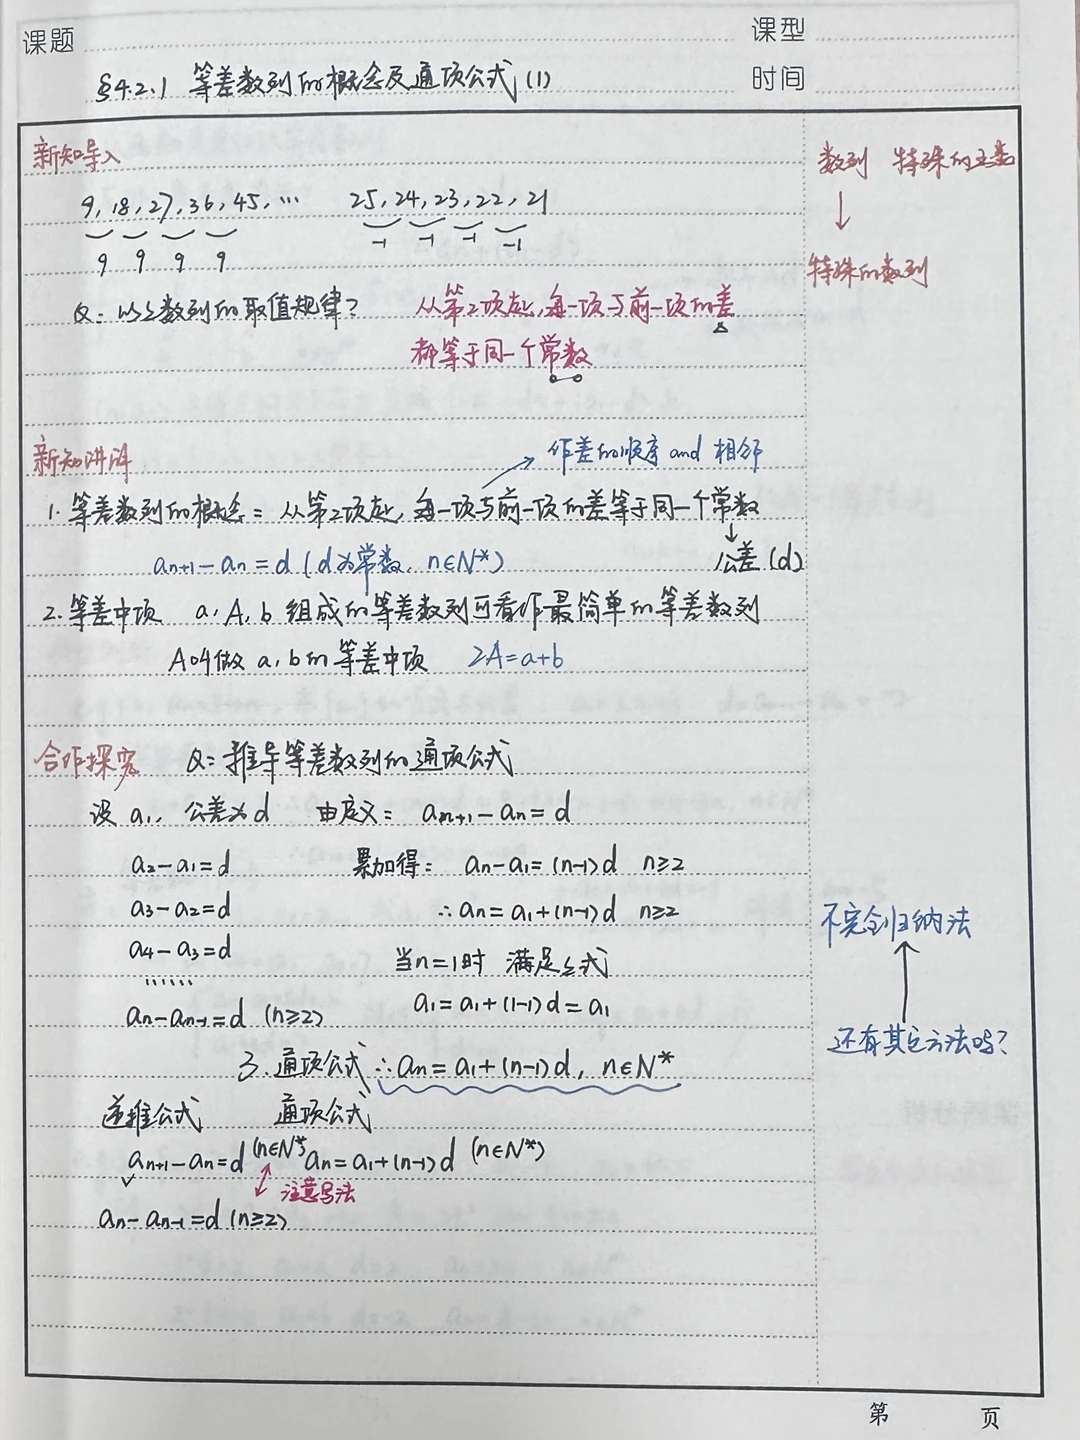 课题
课型
§4.2.1 等差数列的概念及通项公式(1)
时间
新知导入
数列 特殊的
9, 18, 27, 36, 45, … 25, 24, 23, 22, 21
9 9 9 9 -1 -1 -1 -1
特殊的数列
Q: 以上数列的取值规律? 从第2项起,每一项与前一项的差
都等于同一个常数
新知讲解
作差的顺序 and 相邻
1. 等差数列的概念: 从第2项起, 每一项与前一项的差等于同一个常数
aₙ₊₁-aₙ=d (d为常数, n∈N*) 公差(d)
2. 等差中项 a, A, b 组成的等差数列可看作最简单的等差数列
A叫做 a, b 的等差中项 2A=a+b
合作探究 Q: 推导等差数列的通项公式
设 a₁, 公差为d 由定义: aₙ₊₁-aₙ=d
a₂-a₁=d 累加得: aₙ-a₁=(n-1)d n≥2
a₃-a₂=d ∴aₙ=a₁+(n-1)d n≥2
不完全归纳法
a₄-a₃=d 当n=1时 满足上式
……
aₙ-aₙ₋₁=d (n≥2) a₁=a₁+(1-1)d=a₁
还有其它方法吗?
3. 通项公式 ∴aₙ=a₁+(n-1)d, n∈N*
递推公式 通项公式
aₙ₊₁-aₙ=d (n∈N*) aₙ=a₁+(n-1)d (n∈N*)
注意写法
aₙ-aₙ₋₁=d (n≥2)
第 页